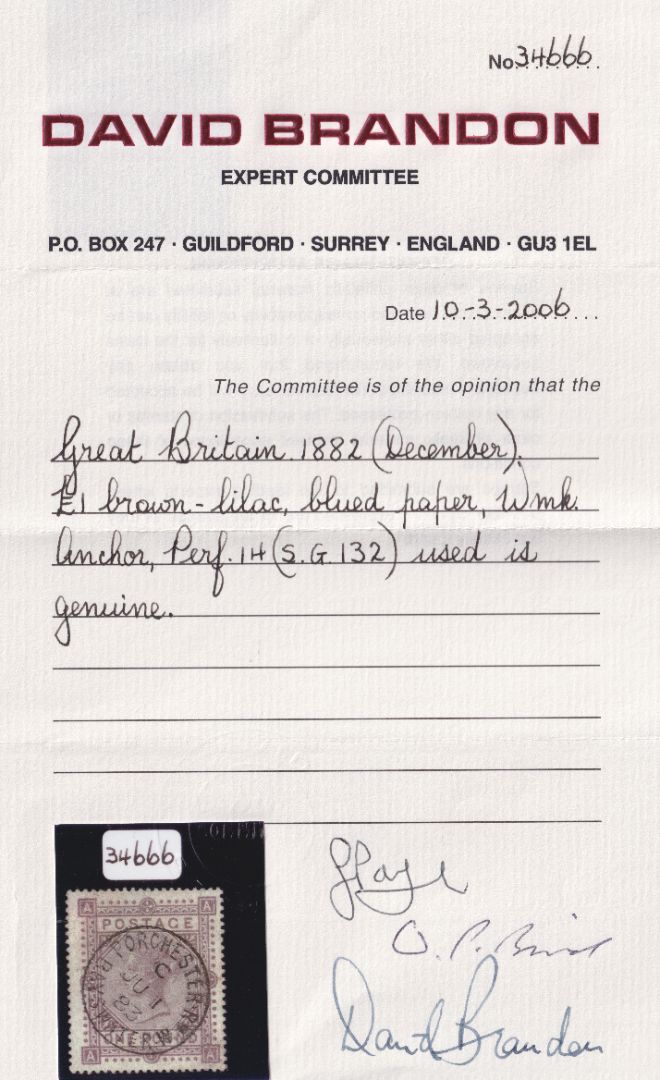 No 34666
DAVID BRANDON
EXPERT COMMITTEE
P.O. BOX 247 · GUILDFORD · SURREY · ENGLAND · GU3 1EL
Date 10-3-2006
The Committee is of the opinion that the
Great Britain 1882 (December).
£1 brown-lilac, blued paper, Wmk.
Anchor, Perf. 14 (S.G. 132) used is
genuine.
34666
A A
POSTAGE
PORCHESTER
C
JU 1
83
ONE POUND
A A
David Brandon